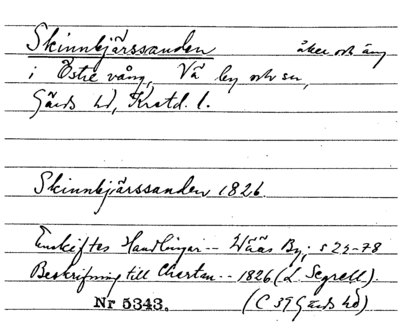 Skinnbjärssanden åker och äng
i Östre vång, Vä by och sn,
Gärds hd, Kristd. l.
Skinnbjärssanden 1826.
Enskiftes Handlingar -- Wääs By; s 24-78
Beskrifning till Chartan -- 1826 (L. Segrell).
Nr 5343. (C 39 Gärds hd)